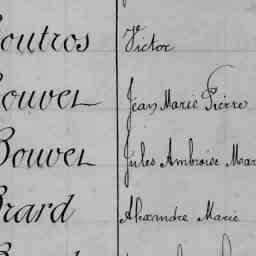 outros Victor
ouvet Jean Marie Pierre
Bouvet Jules Ambroise Mar
Brard Alexandre Marie